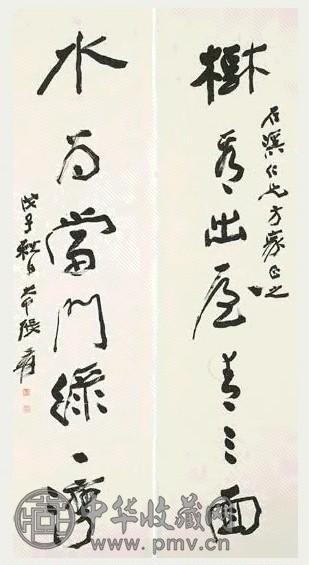 樹出屋青三面
石溪仁兄方家正之
水為當門綠一灣
戊子秋日大千張爰
中华收藏网
www.pmv.cn